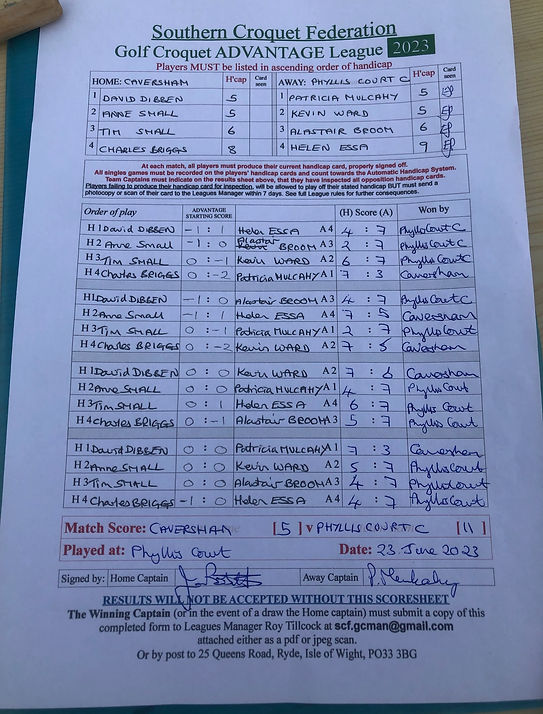 Southern Croquet Federation
Golf Croquet ADVANTAGE League 2023
Players MUST be listed in ascending order of handicap
HOME: CAVERSHAM H'cap Card seen AWAY: PHYLLIS COURT C H'cap Card seen
1 DAVID DIBBEN 5 1 PATRICIA MULCAHY 5
2 ANNE SMALL 5 2 KEVIN WARD 5
3 TIM SMALL 6 3 ALASTAIR BROOM 6
4 CHARLES BRIGGS 8 4 HELEN ESSA 9
At each match, all players must produce their current handicap card, properly signed off.
All singles games must be recorded on the players' handicap cards and count towards the Automatic Handicap System.
Team Captains must indicate on the results sheet above, that they have inspected all opposition handicap cards.
Players failing to produce their handicap card for inspection, will be allowed to play off their stated handicap BUT must send a
photocopy or scan of their card to the Leagues Manager within 7 days. See full League rules for further consequences.
Order of play ADVANTAGE STARTING SCORE (H) Score (A) Won by
H1 David DIBBEN -1 : 1 Helen ESSA A4 4 : 7 Phyllis Court C
H2 Anne Small -1 : 0 Alastair BROOM A3 2 : 7 Phyllis Court C
H3 Tim SMALL 0 : -1 Kevin WARD A2 6 : 7 Phyllis Court C
H4 Charles BRIGGS 0 : -2 Patricia MULCAHY A1 7 : 3 Caversham
H1 David DIBBEN -1 : 0 Alastair BROOM A3 4 : 7 Phyllis Court C
H2 Anne Small -1 : 1 Helen ESSA A4 7 : 5 Caversham
H3 Tim SMALL 0 : -1 Patricia MULCAHY A1 2 : 7 Phyllis Court
H4 Charles BRIGGS 0 : -2 Kevin WARD A2 7 : 5 Caversham
H1 David DIBBEN 0 : 0 Kevin WARD A2 7 : 6 Caversham
H2 Anne SMALL 0 : 0 Patricia MULCAHY A1 4 : 7 Phyllis Court
H3 Tim SMALL 0 : 1 Helen ESSA A4 6 : 7 Phyllis Court
H4 Charles BRIGGS 0 : -1 Alastair BROOM A3 5 : 7 Phyllis Court
H1 David DIBBEN 0 : 0 Patricia MULCAHY A1 7 : 3 Caversham
H2 Anne SMALL 0 : 0 Kevin WARD A2 5 : 7 Phyllis Court
H3 Tim SMALL 0 : 0 Alastair BROOM A3 4 : 7 Phyllis Court
H4 Charles BRIGGS -1 : 0 Helen ESSA A4 4 : 7 Phyllis Court
Match Score: CAVERSHAM [5] v PHYLLIS COURT C [11]
Played at: Phyllis Court Date: 23 June 2023
Signed by: Home Captain Away Captain P. Mulcahy
RESULTS WILL NOT BE ACCEPTED WITHOUT THIS SCORESHEET
The Winning Captain (or in the event of a draw the Home captain) must submit a copy of this
completed form to Leagues Manager Roy Tillcock at scf.gcman@gmail.com
attached either as a pdf or jpeg scan.
Or by post to 25 Queens Road, Ryde, Isle of Wight, PO33 3BG